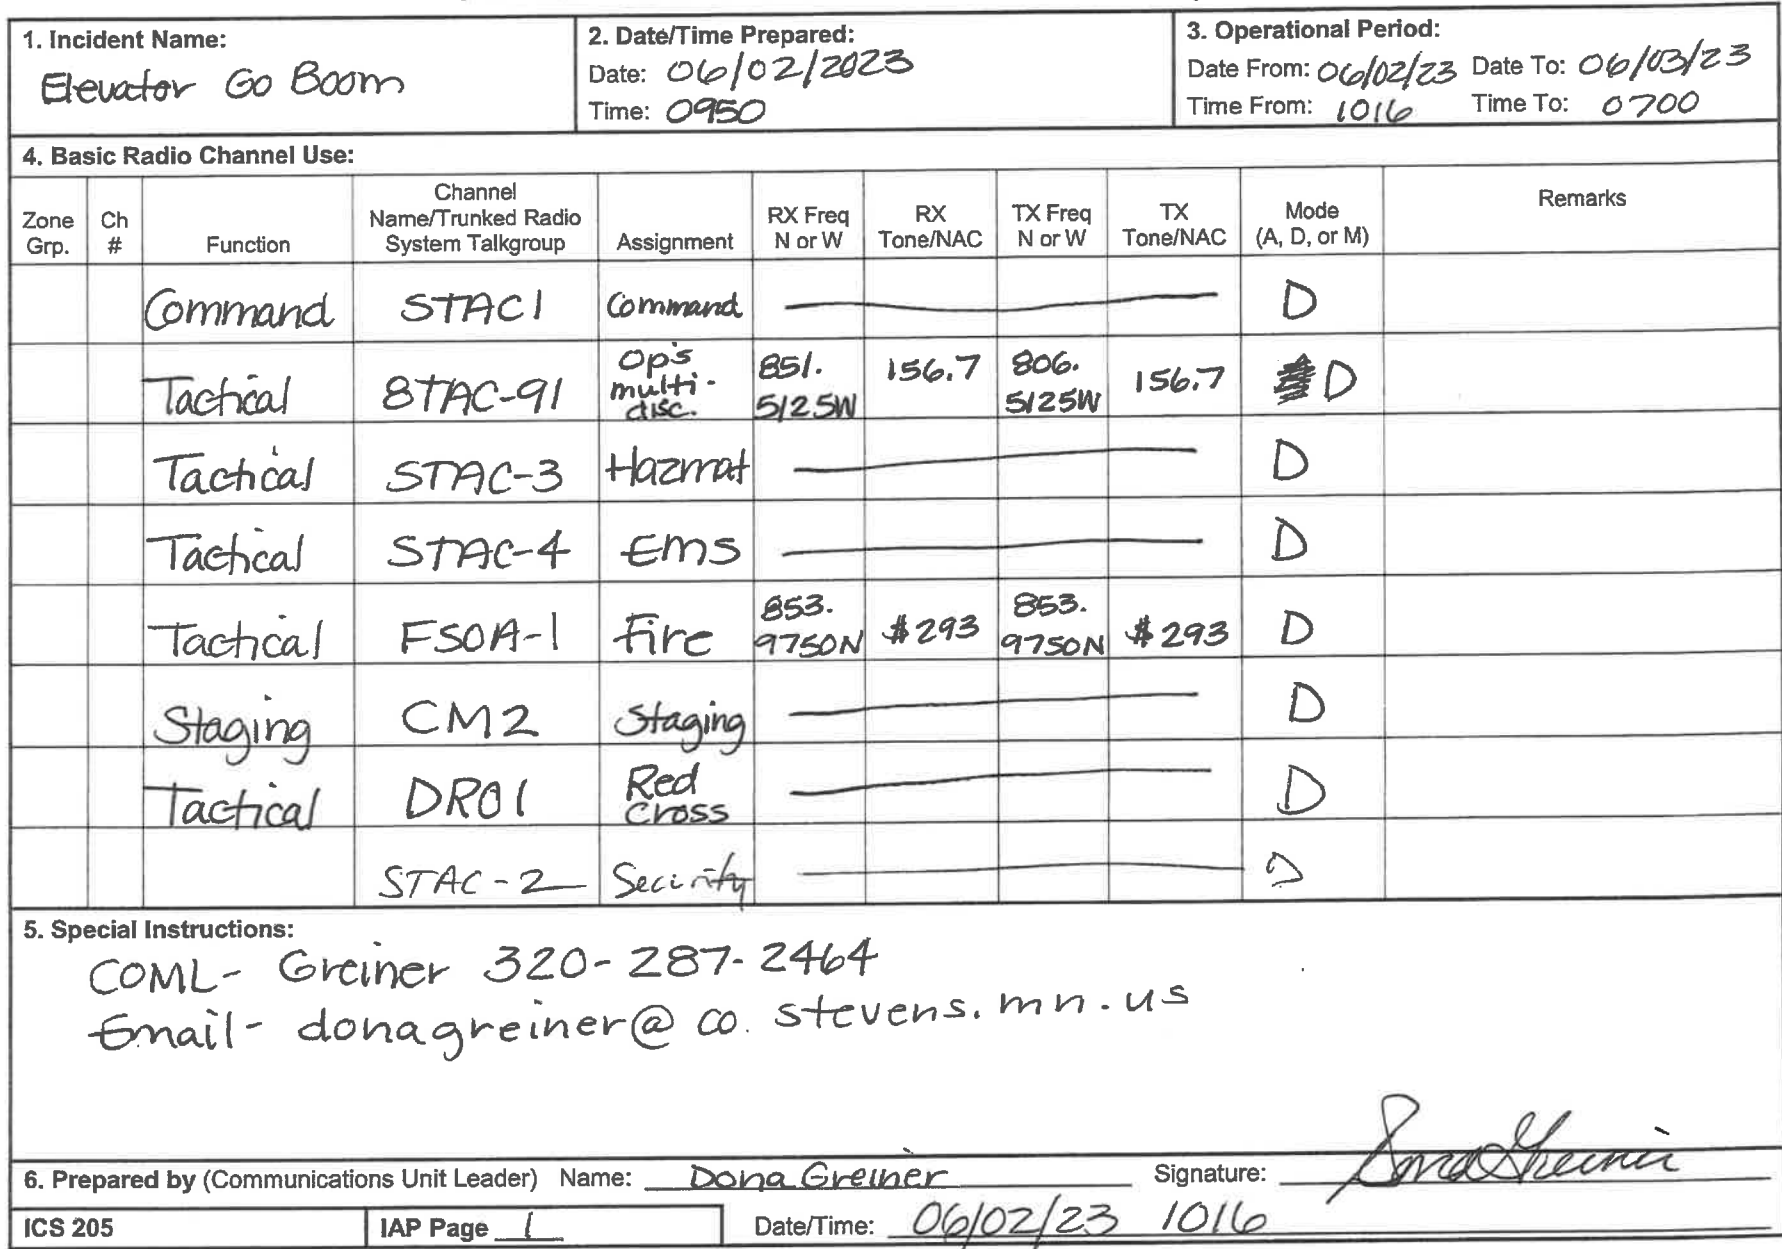 1. Incident Name:
Elevator Go Boom
2. Date/Time Prepared:
Date: 06/02/2023
Time: 0950
3. Operational Period:
Date From: 06/02/23 Date To: 06/03/23
Time From: 1016 Time To: 0700
4. Basic Radio Channel Use:
Zone Grp. Ch # Function Channel Name/Trunked Radio System Talkgroup Assignment RX Freq N or W RX Tone/NAC TX Freq N or W TX Tone/NAC Mode (A, D, or M) Remarks
Command STAC1 Command D
Tactical 8TAC-91 Op's multi-disc. 851.5125W 156.7 806.5125W 156.7 D
Tactical STAC-3 Hazmat D
Tactical STAC-4 Ems D
Tactical FSOA-1 Fire 853.9750N $293 853.9750N $293 D
Staging CM2 Staging D
Tactical DRO1 Red Cross D
STAC-2 Security D
5. Special Instructions:
COML- Greiner 320-287-2464
Email- donagreiner@co.stevens.mn.us
6. Prepared by (Communications Unit Leader) Name: Dona Greiner Signature: Dona Greiner
ICS 205 IAP Page 1 Date/Time: 06/02/23 1016